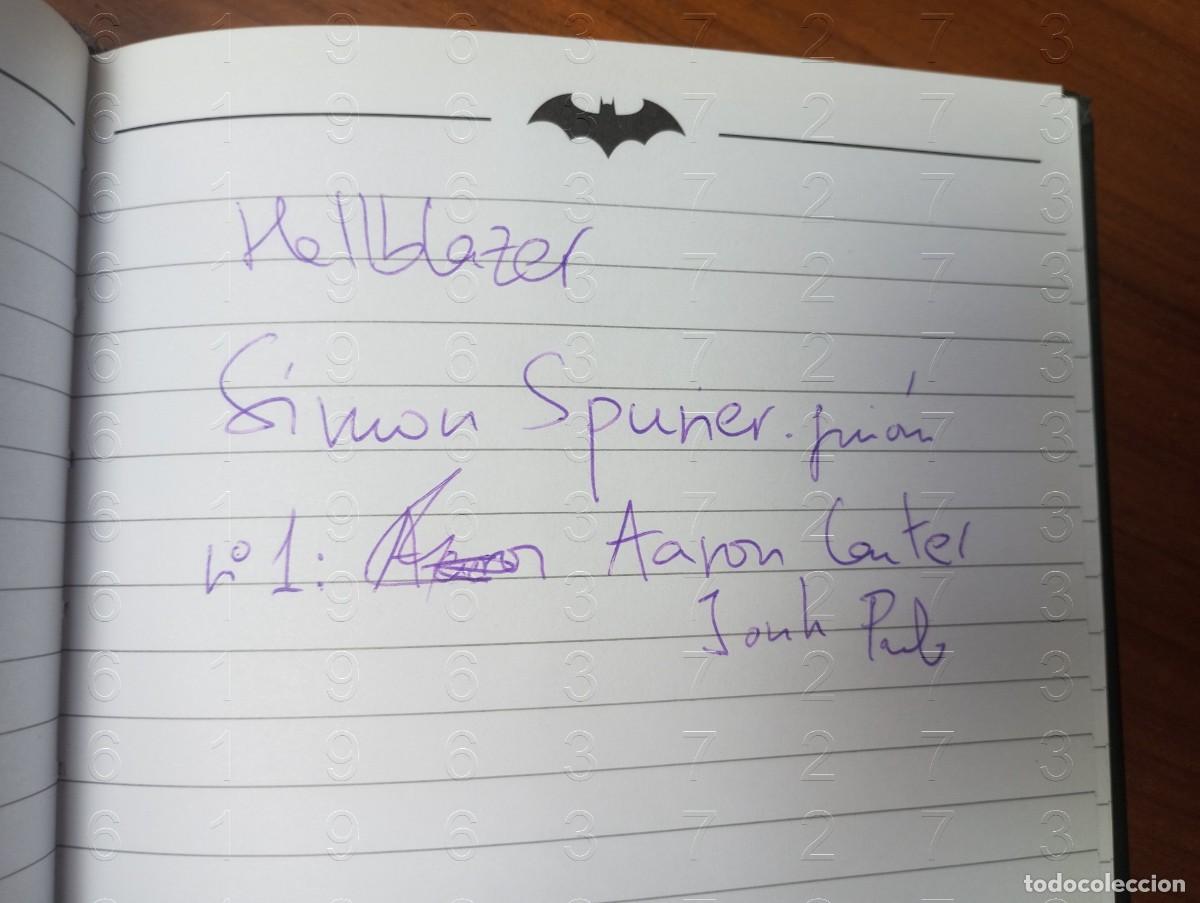 Hellblazer
Simon Spurier. guión
nº 1: Aaron Aaron Conter
Jonh Paul
todocoleccion